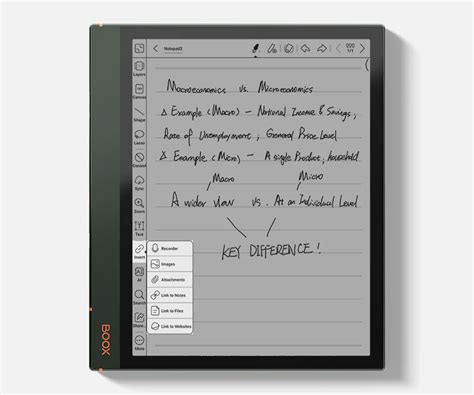 Notepad3
000
1/1
Layers
Canvas
Shape
Lasso
Convert
Sync
Zoom
Text
Insert
AI
Search
Share
More
Recorder
Images
Attachments
Link to Notes
Link to Files
Link to Websites
Macroeconomics vs. Microeconomics
Δ Example (Macro) – National Income & Savings,
Rate of Unemployment, General Price Level
Example (Micro) – A single Product, household
Macro Micro
A wider view vs. At an Individual Level
KEY DIFFERENCE!
BOOX